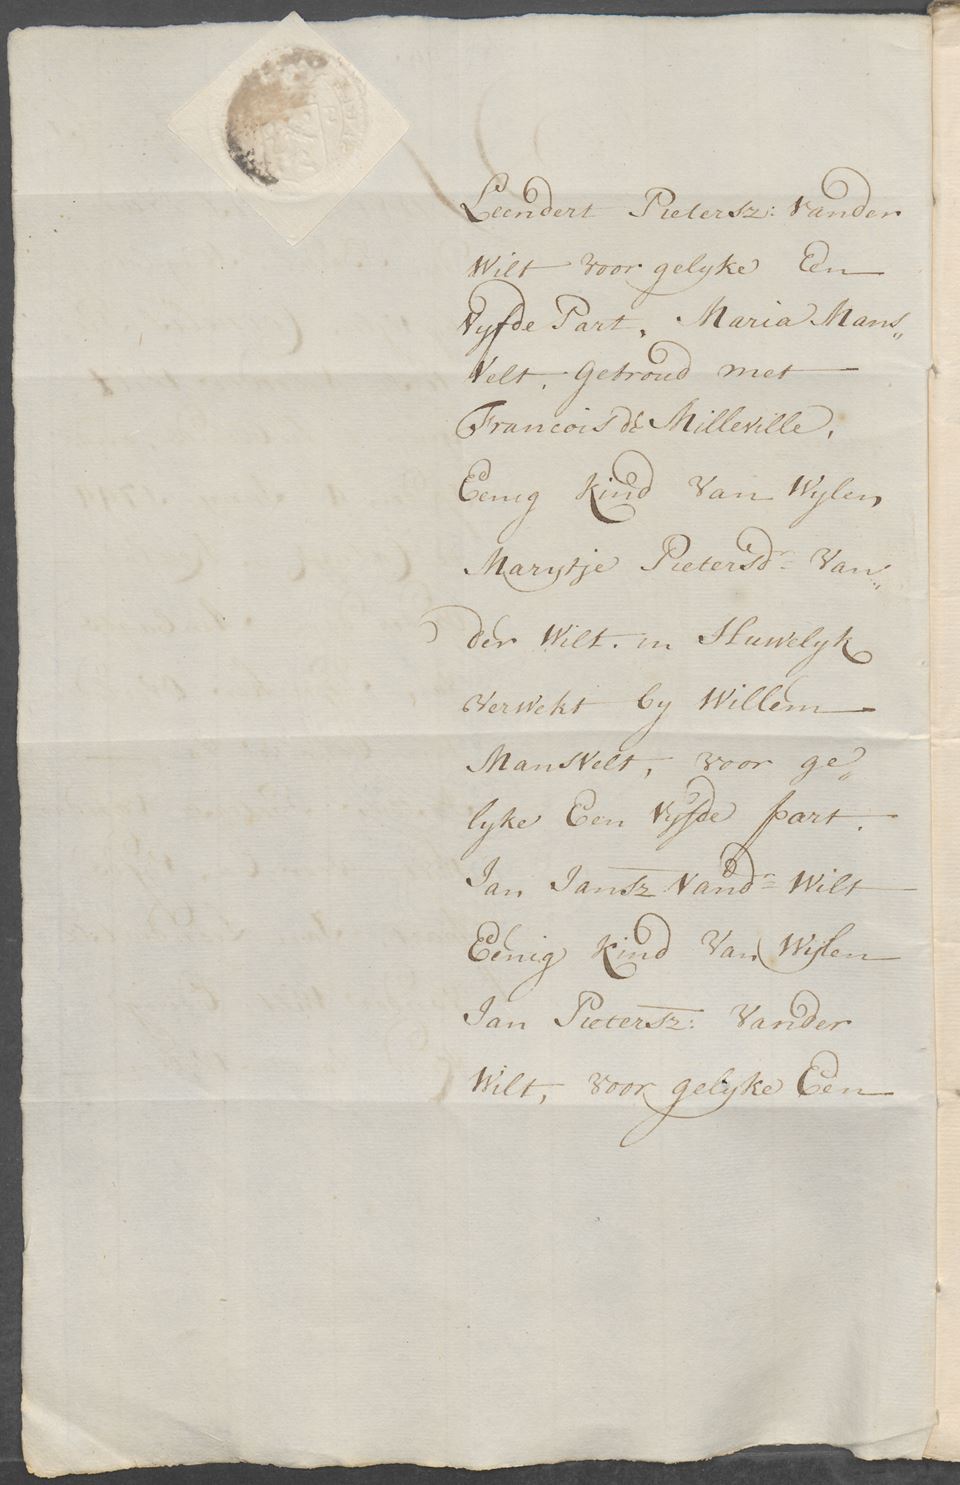 Leendert Pietersz: Vander
Wilt voor gelyke Een
Vyfde Part, Maria Mans„
Velt, Getroud met
Francois de Milleville,
Eenig kind Van Wylen
Marytje Pietersdr= Van„
der Wilt. in Huwelyk
verwekt by Willem
MansVelt, voor ge„
lyke Een Vyfde part.
Jan Jansz Vandr= Wilt
Eenig kind Van Wylen
Jan Pietersz: Vander
Wilt, voor gelyke Een